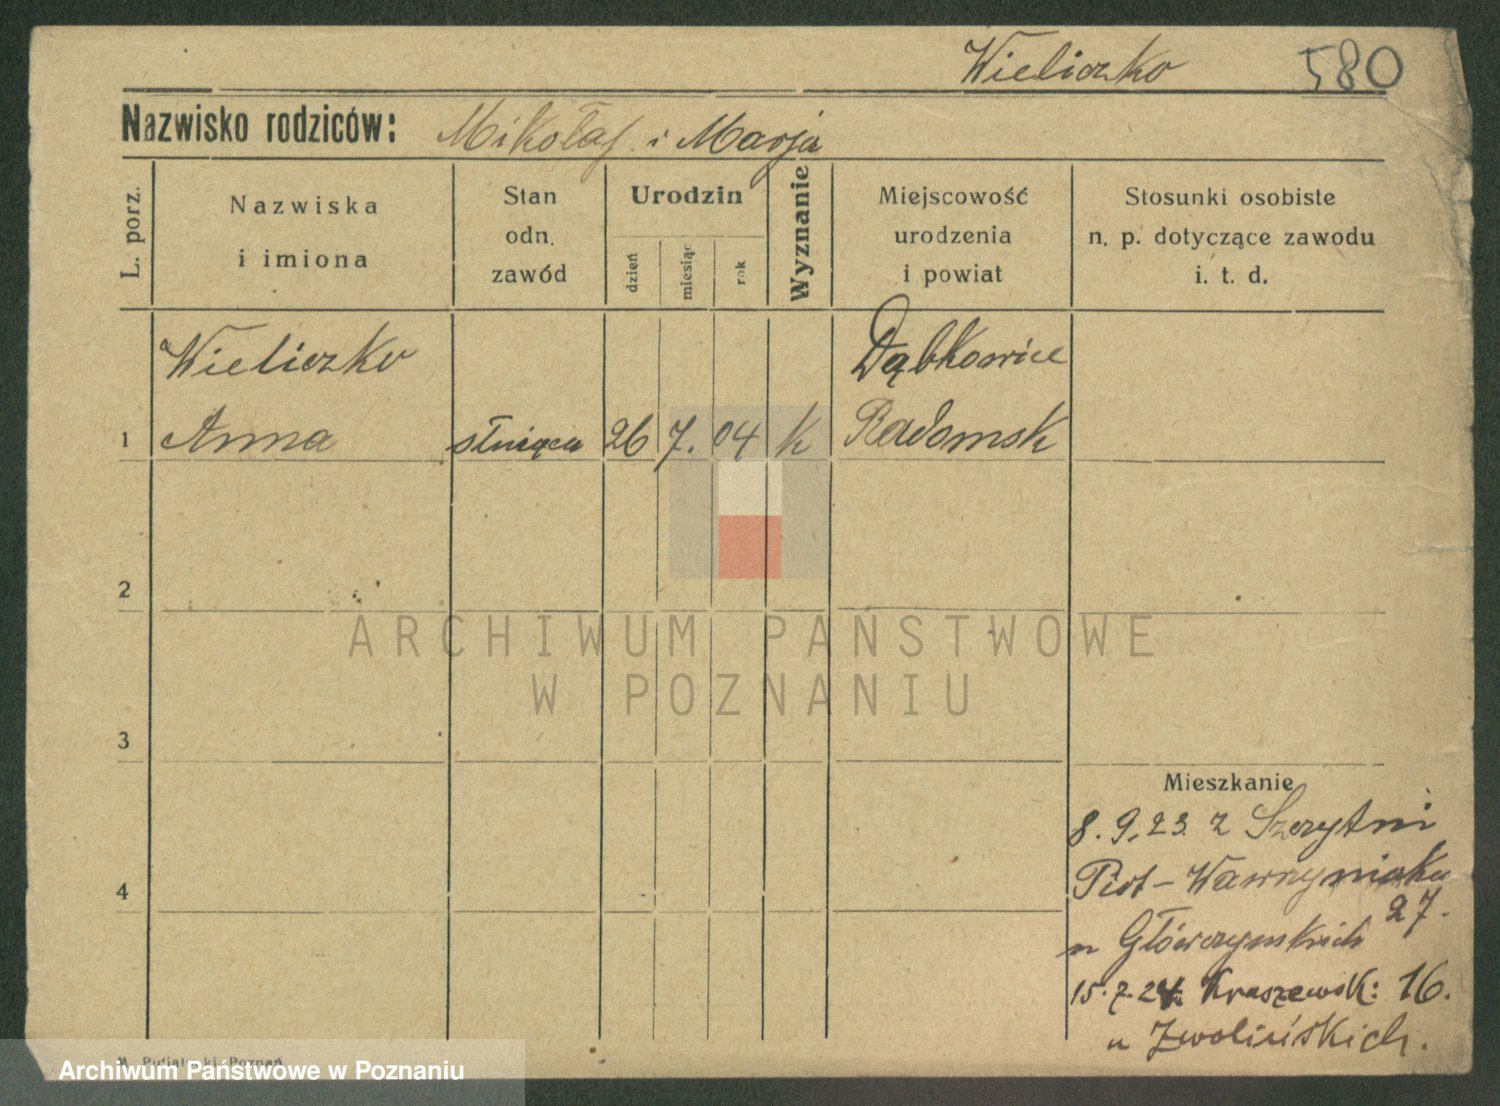 Wieliczko 580
Nazwisko rodziców: Mikołaj i Marja
L. porz.
Nazwiska
i imiona
Stan
odn.
zawód
Urodzin
dzień
miesiąc
rok
Wyznanie
Miejscowość
urodzenia
i powiat
Stosunki osobiste
n. p. dotyczące zawodu
i. t. d.
Wieliczko Dąbkowice
1 Anna służąca 26 7. 04 k Radomsk
2
ARCHIWUM PAŃSTWOWE
W POZNANIU
3
Mieszkanie
8. 9. 23. z Szczytni
4
Piot - Wawrzyniaka
27.
u Główczyńskich
15. 7. 24. Kraszewsk: 16.
u Zwolińskich.
Archiwum Państwowe w Poznaniu